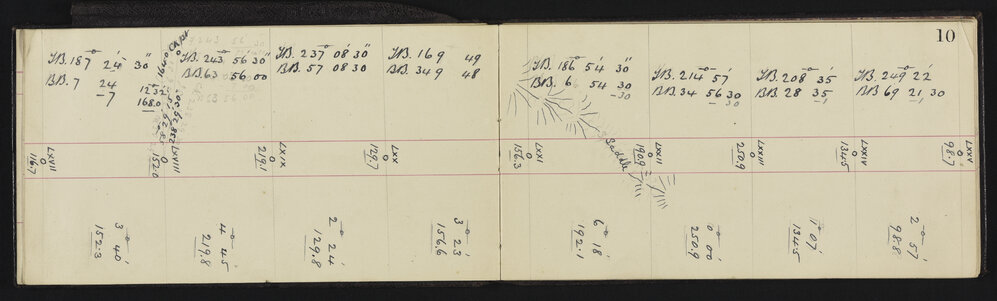 10
F.B. 187° 24' 30"
B.B. 7 24
-7
1232
168.0
F.B. 243° 56' 30"
B.B. 63 56 00
F.B. 237° 08' 30"
B.B. 57 08 30
F.B. 169 49
B.B. 349 48
F.B. 186° 54' 30"
B.B. 6 54 30
-30
F.B. 214° 57'
B.B. 34 56 30
-30
F.B. 208° 35'
B.B. 28 35
-1
F.B. 249° 22'
B.B. 69 21 30
-1
Saddle
LXVII
116.7
LXVIII
152.0
LXIX
219.1
LXX
129.7
LXXI
156.3
LXII
190.9
LXIII
250.9
LXIV
134.5
LXV
98.7
3° 40'
152.3
4° 45
219.8
2° 24'
129.8
3° 23'
156.6
6° 18'
192.1
0° 00'
250.9
1° 07'
134.5
2° 57'
98.8